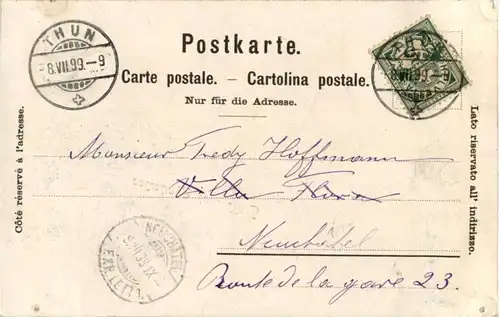 THUN
8.VII.99.–9
Postkarte.
Carte postale. — Cartolina postale.
Nur für die Adresse.
Côté réservé à l'adresse.
Lato riservato all' indirizzo.
THUN
8.VII.99.–9
Monsieur Fredy Hoffmann
Villa Flora
Neuchâtel
Route de la gare 23.
NEUCHATEL